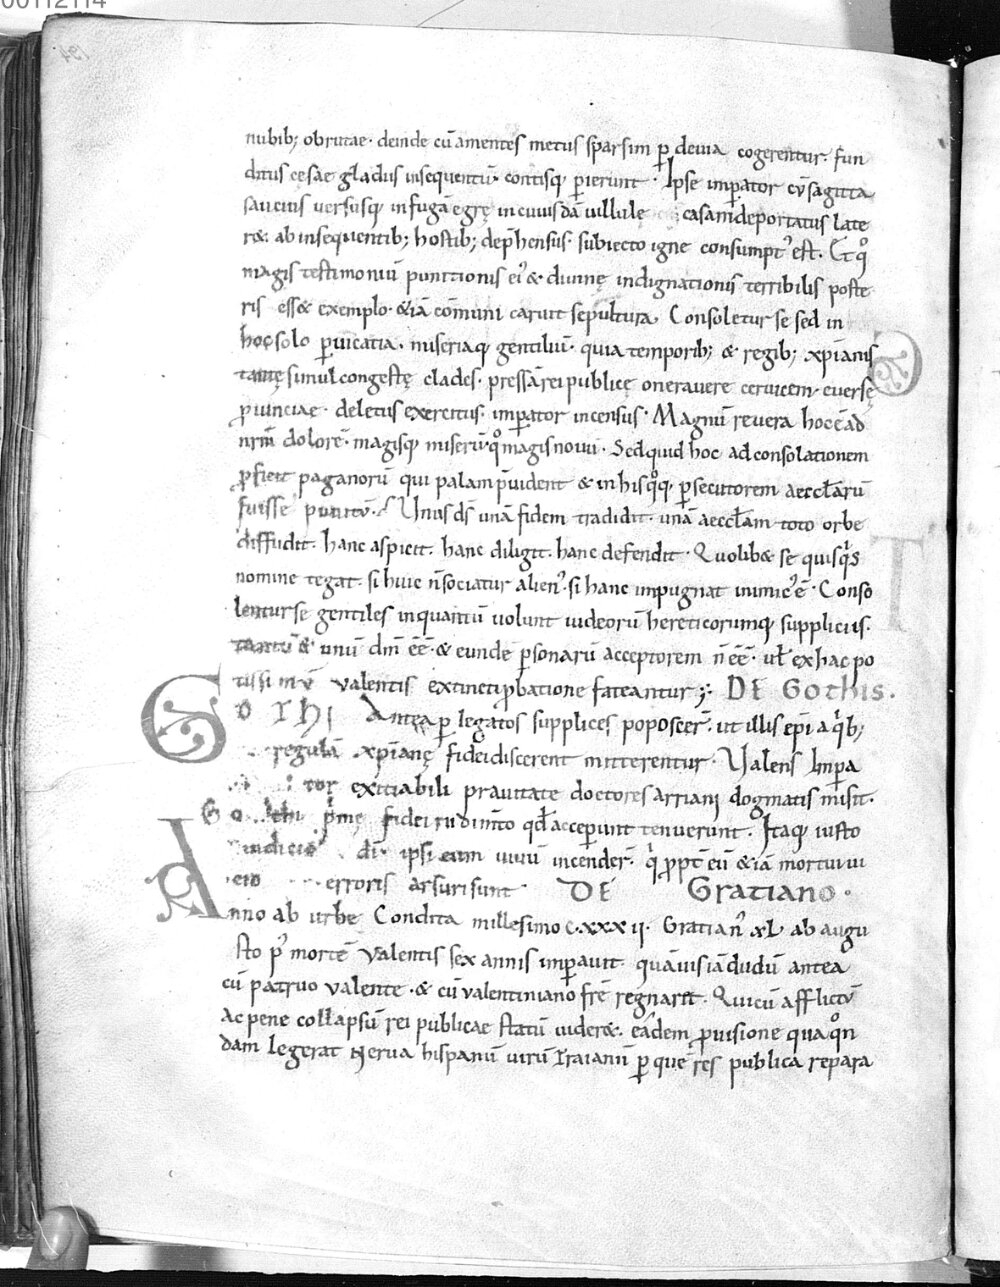 00112114
194
nubib; obrutae· deinde cū amentes metus sparsim ꝑ devia cogerentur· fun
ditus cesae gladiis insequentiū· contisq; ꝑierunt· Ipse imꝑator cū sagitta
saucius versusq; in fugā egrę in cuiusdā villule casam deportatus late
r&· ab insequentib; hostib; dep̄hensus· subiecto igne consumpt' est· Et qº
magis testimoniū punitionis ei' & divinę indignationis terribilis poste
ris ess& exemplo· &iā cōmuni caruit sepultura, Consoletur se sed in
hoc solo ꝑvicatia· miseriaq; gentiliū· quia temporib; & regib; xp̄ianis
tantę simul congestę clades· pressā rei publicę oneravere cervicem· eversę
ꝓvinciae· deletus exercitus· imꝑator incensus· Magnū revera hoc ē ad
nr̄m dolorē· magisq; miserū· qº magis novū· Sed quid hoc ad consolationem
ꝓficit paganorū qui palam p̄vident & in his qºq; ꝑsecutorem aeccl̄arū
fuisse punitū· Unus ds̄ unā fidem tradidit· unā aeccl̄am toto orbe
diffudit· hanc aspicit· hanc diligit· hanc defendit· Quolib& se quisq's
nomine tegat· si huic n̄ sociatur alien'· si hanc impugnat inimic' ē· Conso
lentur se gentiles in quantū volunt iudeorū hereticorumq; suppliciis·
tantū & unū dm̄ ēē· & eunde ꝑsonarū acceptorem n̄ ēē· ul̄ ex hac po
tissimū valentis extincti ꝓbatione fateantur; DE Gothis.
GOTHI Antea ꝑ legatos supplices poposcer̄· ut illis ep̄i a q'b;
regulā xp̄ianę fidei discerent mitterentur· Valens Imꝑa
tor exitiabili pravitate doctores arriani dogmatis misit·
Gothi p'mę fidei rudim̄to qd̄ acceperunt tenuerunt. Itaq; iusto
iudicio dī· ipsi eum vivū incender̄· q' ꝓpt̄ eū &iā mortui vi
cio erroris arsuri sunt DE Gratiano·
Anno ab urbe Condita millesimo c·xxxii· Gratian' xl ab augu
sto p' mortē valentis sex annis imꝑavit· quāvis iādudū antea
cū patruo valente· & cū valentiniano fr̄e regnarit· Qui cū afflictū
ac pene collapsū rei publicae statū vider&· eadem ꝓvisione qua qºn
dam legerat Nerva hispanū virū traianū ꝑ quē res publica repara